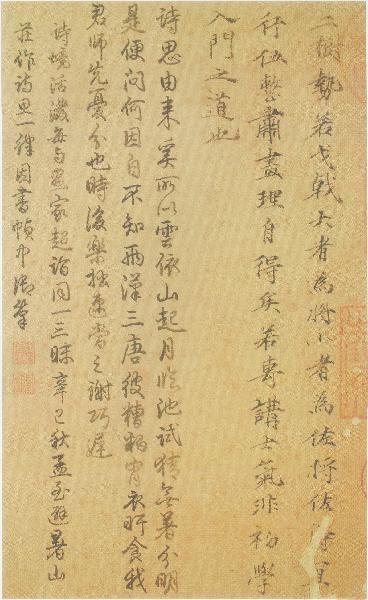 二樹勢若戈戟大者為將小者為佐將佐得宜
行伍整肅畫理自得矣若專講士氣非初學
入門之道也
詩思由来奚所以雲依山起月臨池試猜無著分明
是便問何因自不知兩漢三唐彼糟粕宵衣旰食我
君師先憂分也時後樂拙速當之謝巧遲
詩境活潑每与畫家超詣同一三昧辛巳秋孟至避暑山
莊作詩思一律因書幀中御筆